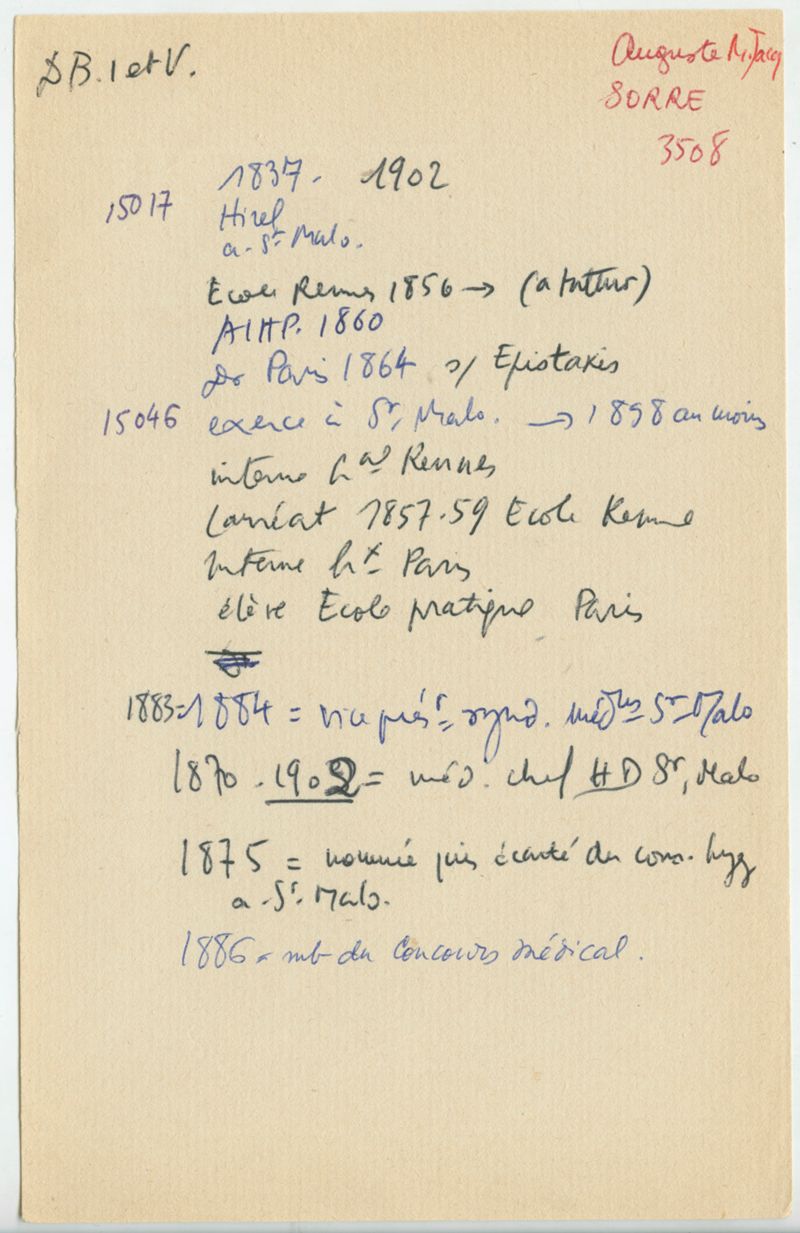 DB. I et V.
Auguste M. Jacq
SORRE
3508
1837. 1902
15017 Hirel
a St Malo.
Ecole Rennes 1856 → (a
AIHP. 1860
Dr Paris 1864 s/ Epistaxis
15046 exerce à St, Malo. → 1898 au moins
interne hal Rennes
Lauréat 1857.59 Ecole Renne
Interne hx Paris
élève Ecole pratique Paris
1883=1884 = vice présr= synd. médres St Malo
1870 . 1902 = méd. chef HD St, Malo
1875 = nommé puis écarté du cons. hyg
a St. Malo.
1886 = mb du Concours médical.